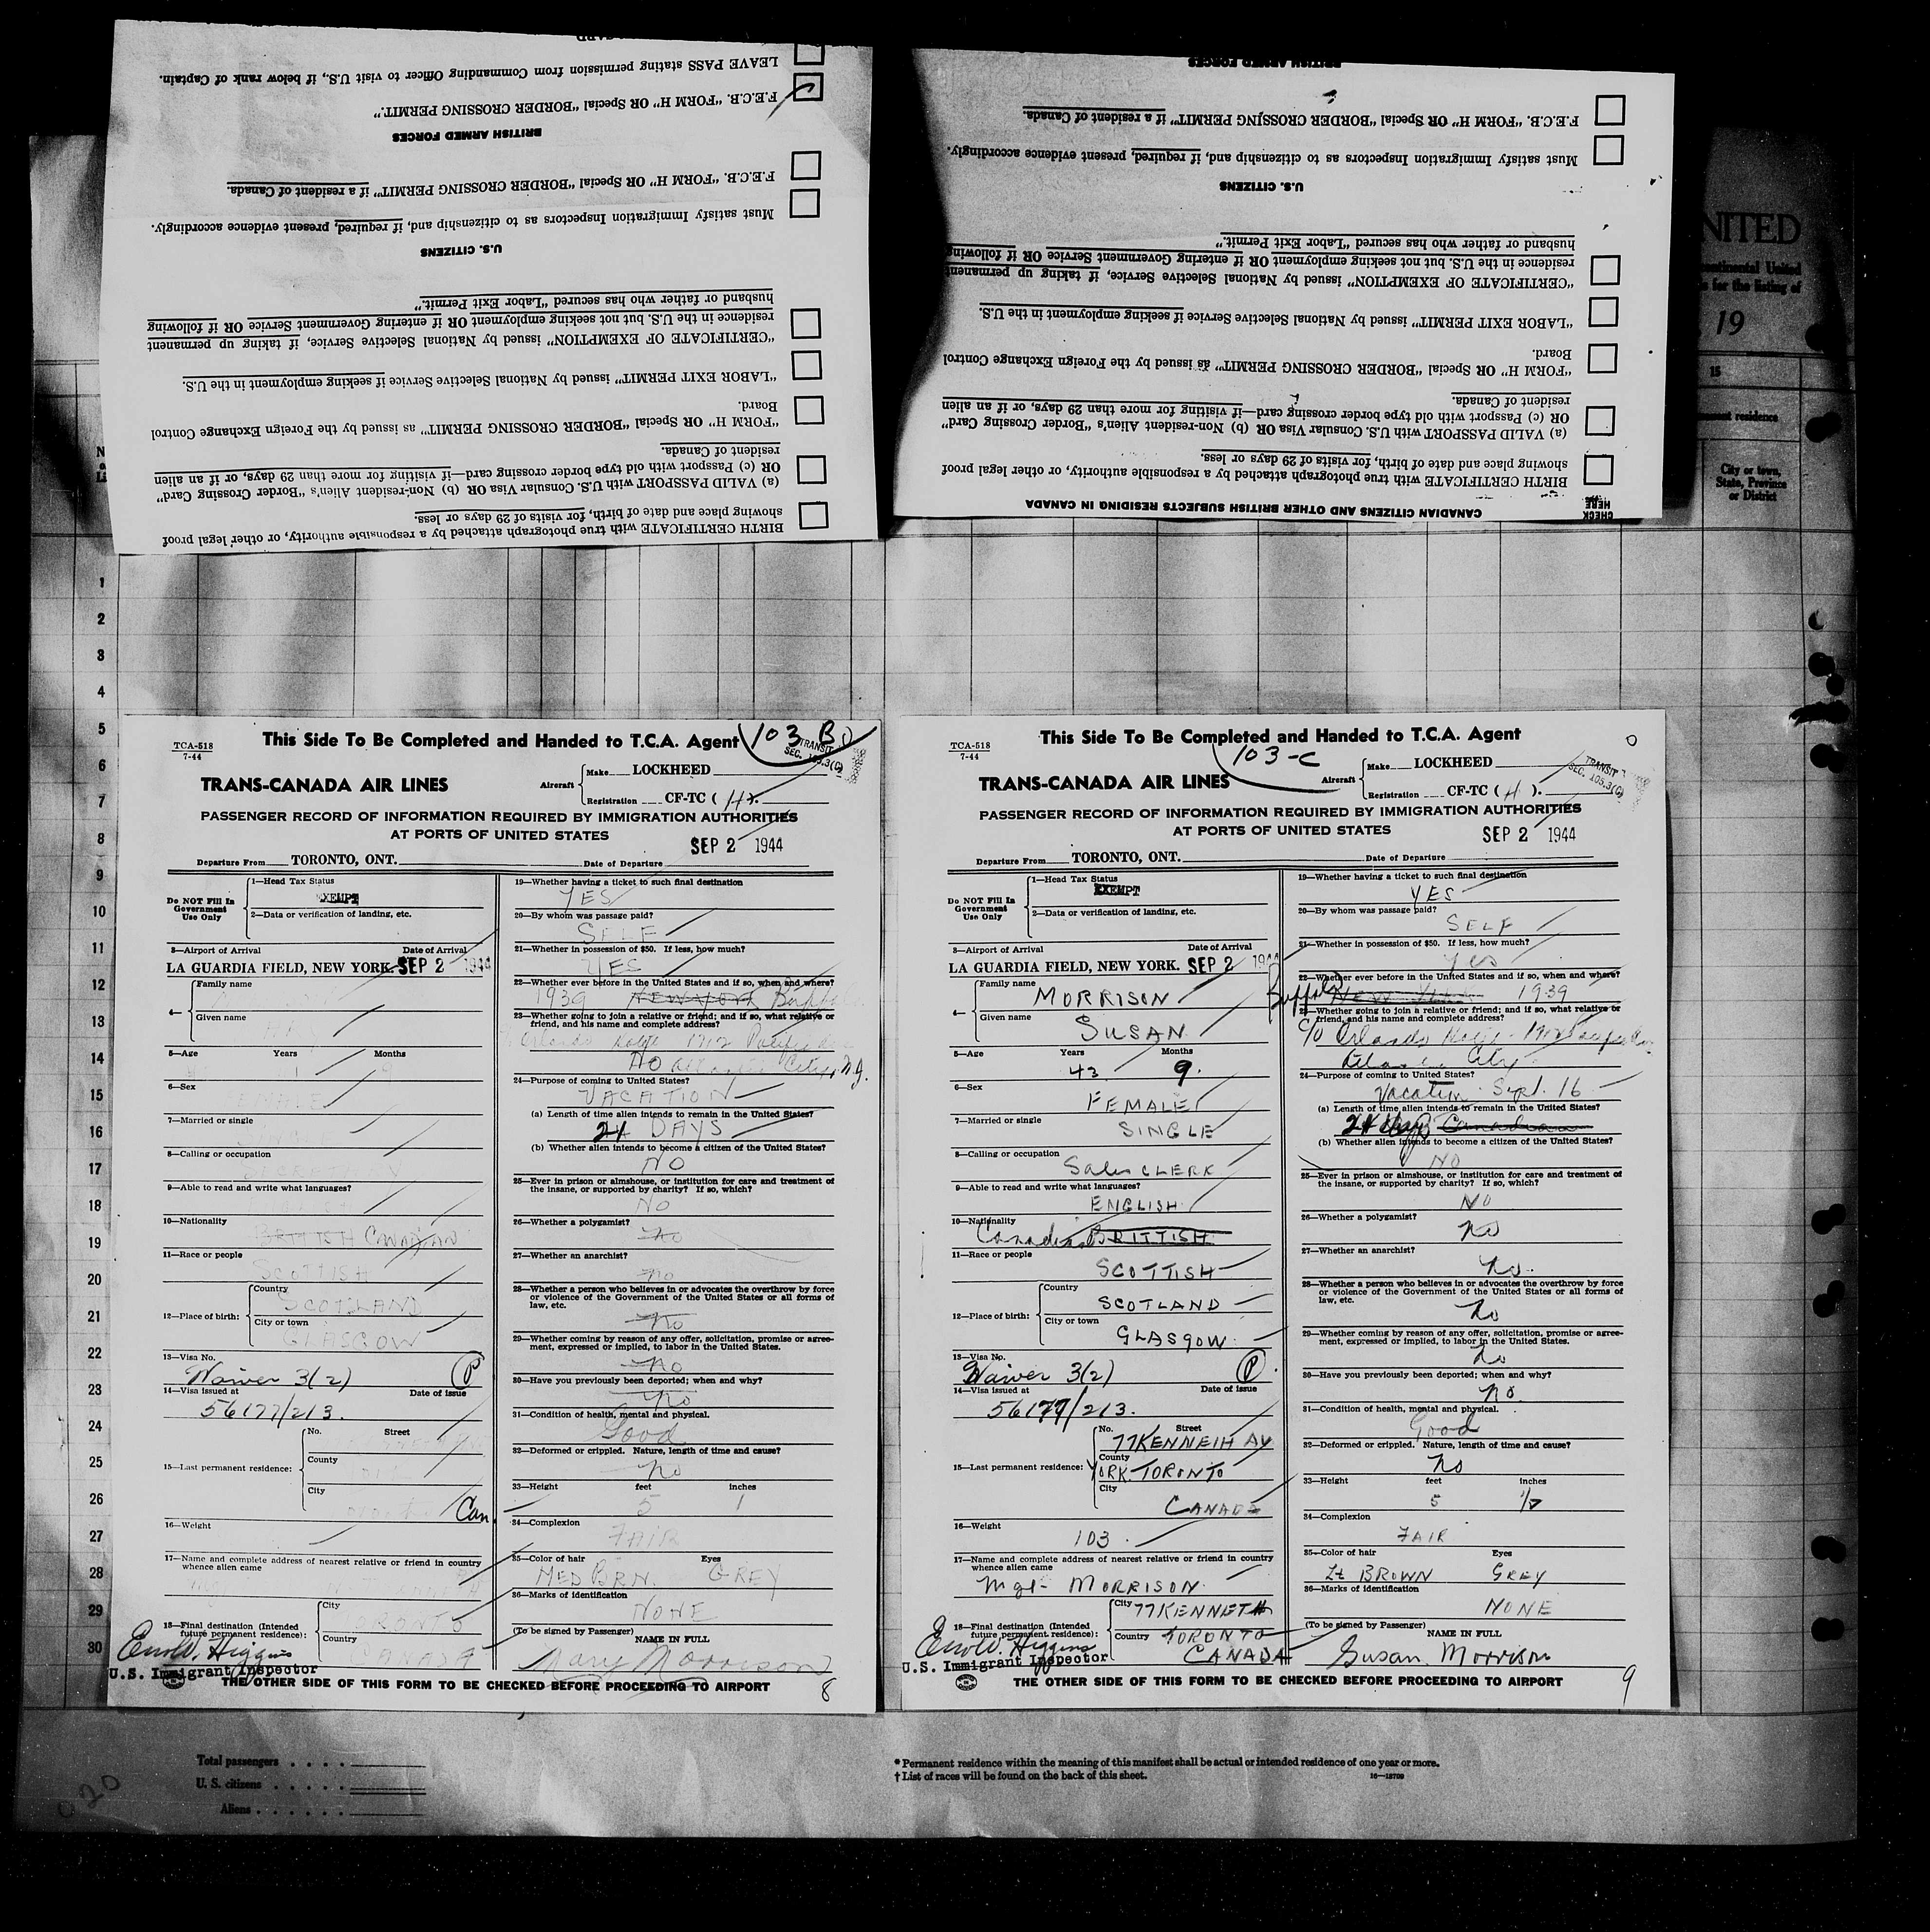 LEAVE PASS stating permission from Commanding Officer to visit U.S., if below rank of Captain.
F.E.C.B. "FORM H" OR Special "BORDER CROSSING PERMIT."
BRITISH ARMED FORCES
F.E.C.B. "FORM H" OR Special "BORDER CROSSING PERMIT" if a resident of Canada.
Must satisfy Immigration Inspectors as to citizenship and, if required, present evidence accordingly.
U.S. CITIZENS
husband or father who has secured "Labor Exit Permit."
residence in the U.S. but not seeking employment OR if entering Government Service OR if following
"CERTIFICATE OF EXEMPTION" issued by National Selective Service, if taking up permanent
"LABOR EXIT PERMIT" issued by National Selective Service if seeking employment in the U.S.
Board.
"FORM H" OR Special "BORDER CROSSING PERMIT" as issued by the Foreign Exchange Control
resident of Canada.
OR (c) Passport with old type border crossing card—if visiting for more than 29 days, or if an alien
(a) VALID PASSPORT with U.S. Consular Visa OR (b) Non-resident Alien's "Border Crossing Card"
showing place and date of birth, for visits of 29 days or less.
BIRTH CERTIFICATE with true photograph attached by a responsible authority, or other legal proof
BRITISH ARMED FORCES
F.E.C.B. "FORM H" OR Special "BORDER CROSSING PERMIT" if a resident of Canada.
Must satisfy Immigration Inspectors as to citizenship and, if required, present evidence accordingly.
U.S. CITIZENS
husband or father who has secured "Labor Exit Permit."
residence in the U.S. but not seeking employment OR if entering Government Service OR if following
"CERTIFICATE OF EXEMPTION" issued by National Selective Service, if taking up permanent
"LABOR EXIT PERMIT" issued by National Selective Service if seeking employment in the U.S.
Board.
"FORM H" OR Special "BORDER CROSSING PERMIT" as issued by the Foreign Exchange Control
resident of Canada.
OR (c) Passport with old type border crossing card—if visiting for more than 29 days, or if an alien
(a) VALID PASSPORT with U.S. Consular Visa OR (b) Non-resident Alien's "Border Crossing Card"
showing place and date of birth, for visits of 29 days or less.
BIRTH CERTIFICATE with true photograph attached by a responsible authority, or other legal proof
CANADIAN CITIZENS AND OTHER BRITISH SUBJECTS RESIDING IN CANADA
CHECK HERE
NITED
ontinental United
for the listing of
19
15
residence
City or town,
State, Province
or District
1
2
3
4
5
6
7
8
9
10
11
12
13
14
15
16
17
18
19
20
21
22
23
24
25
26
27
28
29
30
This Side To Be Completed and Handed to T.C.A. Agent
103 B
TRANSIT
SEC. 105.3(C)
TCA-518
7-44
TRANS-CANADA AIR LINES
Aircraft
Make LOCKHEED
Registration CF-TC ( H ).
PASSENGER RECORD OF INFORMATION REQUIRED BY IMMIGRATION AUTHORITIES
AT PORTS OF UNITED STATES
SEP 2 1944
Departure From TORONTO, ONT. Date of Departure
Do NOT Fill In
Government
Use Only
1—Head Tax Status
EXEMPT
2—Data or verification of landing, etc.
3—Airport of Arrival Date of Arrival
LA GUARDIA FIELD, NEW YORK. SEP 2 1944
4— Family name
Given name
5—Age Years Months
6—Sex
FEMALE
7—Married or single
8—Calling or occupation
9—Able to read and write what languages?
10—Nationality
BRITISH CANADIAN
11—Race or people
SCOTTISH
12—Place of birth: Country
SCOTLAND
City or town
GLASGOW
13—Visa No.
Waiver 3(2) P
14—Visa issued at Date of issue
56177/213.
15—Last permanent residence: No. Street
County
City
Can.
16—Weight
17—Name and complete address of nearest relative or friend in country
whence alien came
18—Final destination (Intended
future permanent residence):
City
TORONTO
Country
CANADA
Eno W. Higgins
U.S. Immigrant Inspector
19—Whether having a ticket to such final destination
YES
20—By whom was passage paid?
SELF
21—Whether in possession of $50. If less, how much?
YES
22—Whether ever before in the United States and if so, when and where?
1939 NEW YORK
23—Whether going to join a relative or friend; and if so, what relative or
friend, and his name and complete address?
Orlando 1712 Pacific
NO Atlantic City, N.J.
24—Purpose of coming to United States?
VACATION
(a) Length of time alien intends to remain in the United States?
21 DAYS
(b) Whether alien intends to become a citizen of the United States?
NO
25—Ever in prison or almshouse, or institution for care and treatment of
the insane, or supported by charity? If so, which?
NO
26—Whether a polygamist?
no
27—Whether an anarchist?
no
28—Whether a person who believes in or advocates the overthrow by force
or violence of the Government of the United States or all forms of
law, etc.
no
29—Whether coming by reason of any offer, solicitation, promise or agree-
ment, expressed or implied, to labor in the United States.
no
30—Have you previously been deported; when and why?
no
31—Condition of health, mental and physical.
Good
32—Deformed or crippled. Nature, length of time and cause?
no
33—Height feet inches
5 1
34—Complexion
FAIR
35—Color of hair Eyes
MED BRN. GREY
36—Marks of identification
NONE
(To be signed by Passenger)
NAME IN FULL
Mary Morrison
THE OTHER SIDE OF THIS FORM TO BE CHECKED BEFORE PROCEEDING TO AIRPORT
8
This Side To Be Completed and Handed to T.C.A. Agent
103-C
TRANSIT
SEC. 105.3(C)
TCA-518
7-44
TRANS-CANADA AIR LINES
Aircraft
Make LOCKHEED
Registration CF-TC ( H ).
PASSENGER RECORD OF INFORMATION REQUIRED BY IMMIGRATION AUTHORITIES
AT PORTS OF UNITED STATES
SEP 2 1944
Departure From TORONTO, ONT. Date of Departure
Do NOT Fill In
Government
Use Only
1—Head Tax Status
EXEMPT
2—Data or verification of landing, etc.
3—Airport of Arrival Date of Arrival
LA GUARDIA FIELD, NEW YORK. SEP 2 1944
4— Family name
MORRISON
Given name
SUSAN
5—Age Years Months
43 9.
6—Sex
FEMALE
7—Married or single
SINGLE
8—Calling or occupation
Sales CLERK
9—Able to read and write what languages?
ENGLISH
10—Nationality
Canadian BRITTISH
11—Race or people
SCOTTISH
12—Place of birth: Country
SCOTLAND
City or town
GLASGOW
13—Visa No.
Waiver 3(2) P
14—Visa issued at Date of issue
56177/213.
15—Last permanent residence: No. Street
77 KENNETH AV
County
YORK. TORONTO
City
CANADA
16—Weight
103
17—Name and complete address of nearest relative or friend in country
whence alien came
MORRISON
18—Final destination (Intended
future permanent residence):
City 77 KENNETH
Country TORONTO
CANADA
Eno W. Higgins
U.S. Immigrant Inspector
19—Whether having a ticket to such final destination
YES
20—By whom was passage paid?
SELF
21—Whether in possession of $50. If less, how much?
Yes
22—Whether ever before in the United States and if so, when and where?
Buffalo New York 1939
23—Whether going to join a relative or friend; and if so, what relative or
friend, and his name and complete address?
c/o Orlando
City
24—Purpose of coming to United States?
Vacation Sept. 16
(a) Length of time alien intends to remain in the United States?
Canadian
(b) Whether alien intends to become a citizen of the United States?
NO
25—Ever in prison or almshouse, or institution for care and treatment of
the insane, or supported by charity? If so, which?
NO
26—Whether a polygamist?
no
27—Whether an anarchist?
no.
28—Whether a person who believes in or advocates the overthrow by force
or violence of the Government of the United States or all forms of
law, etc.
no
29—Whether coming by reason of any offer, solicitation, promise or agree-
ment, expressed or implied, to labor in the United States.
no
30—Have you previously been deported; when and why?
no.
31—Condition of health, mental and physical.
Good
32—Deformed or crippled. Nature, length of time and cause?
no
33—Height feet inches
5 1/2
34—Complexion
FAIR
35—Color of hair Eyes
Lt BROWN GREY
36—Marks of identification
NONE
(To be signed by Passenger)
NAME IN FULL
Susan Morrison
THE OTHER SIDE OF THIS FORM TO BE CHECKED BEFORE PROCEEDING TO AIRPORT
9
Total passengers
U. S. citizens
Aliens
* Permanent residence within the meaning of this manifest shall be actual or intended residence of one year or more.
† List of races will be found on the back of this sheet.
16—18700
20